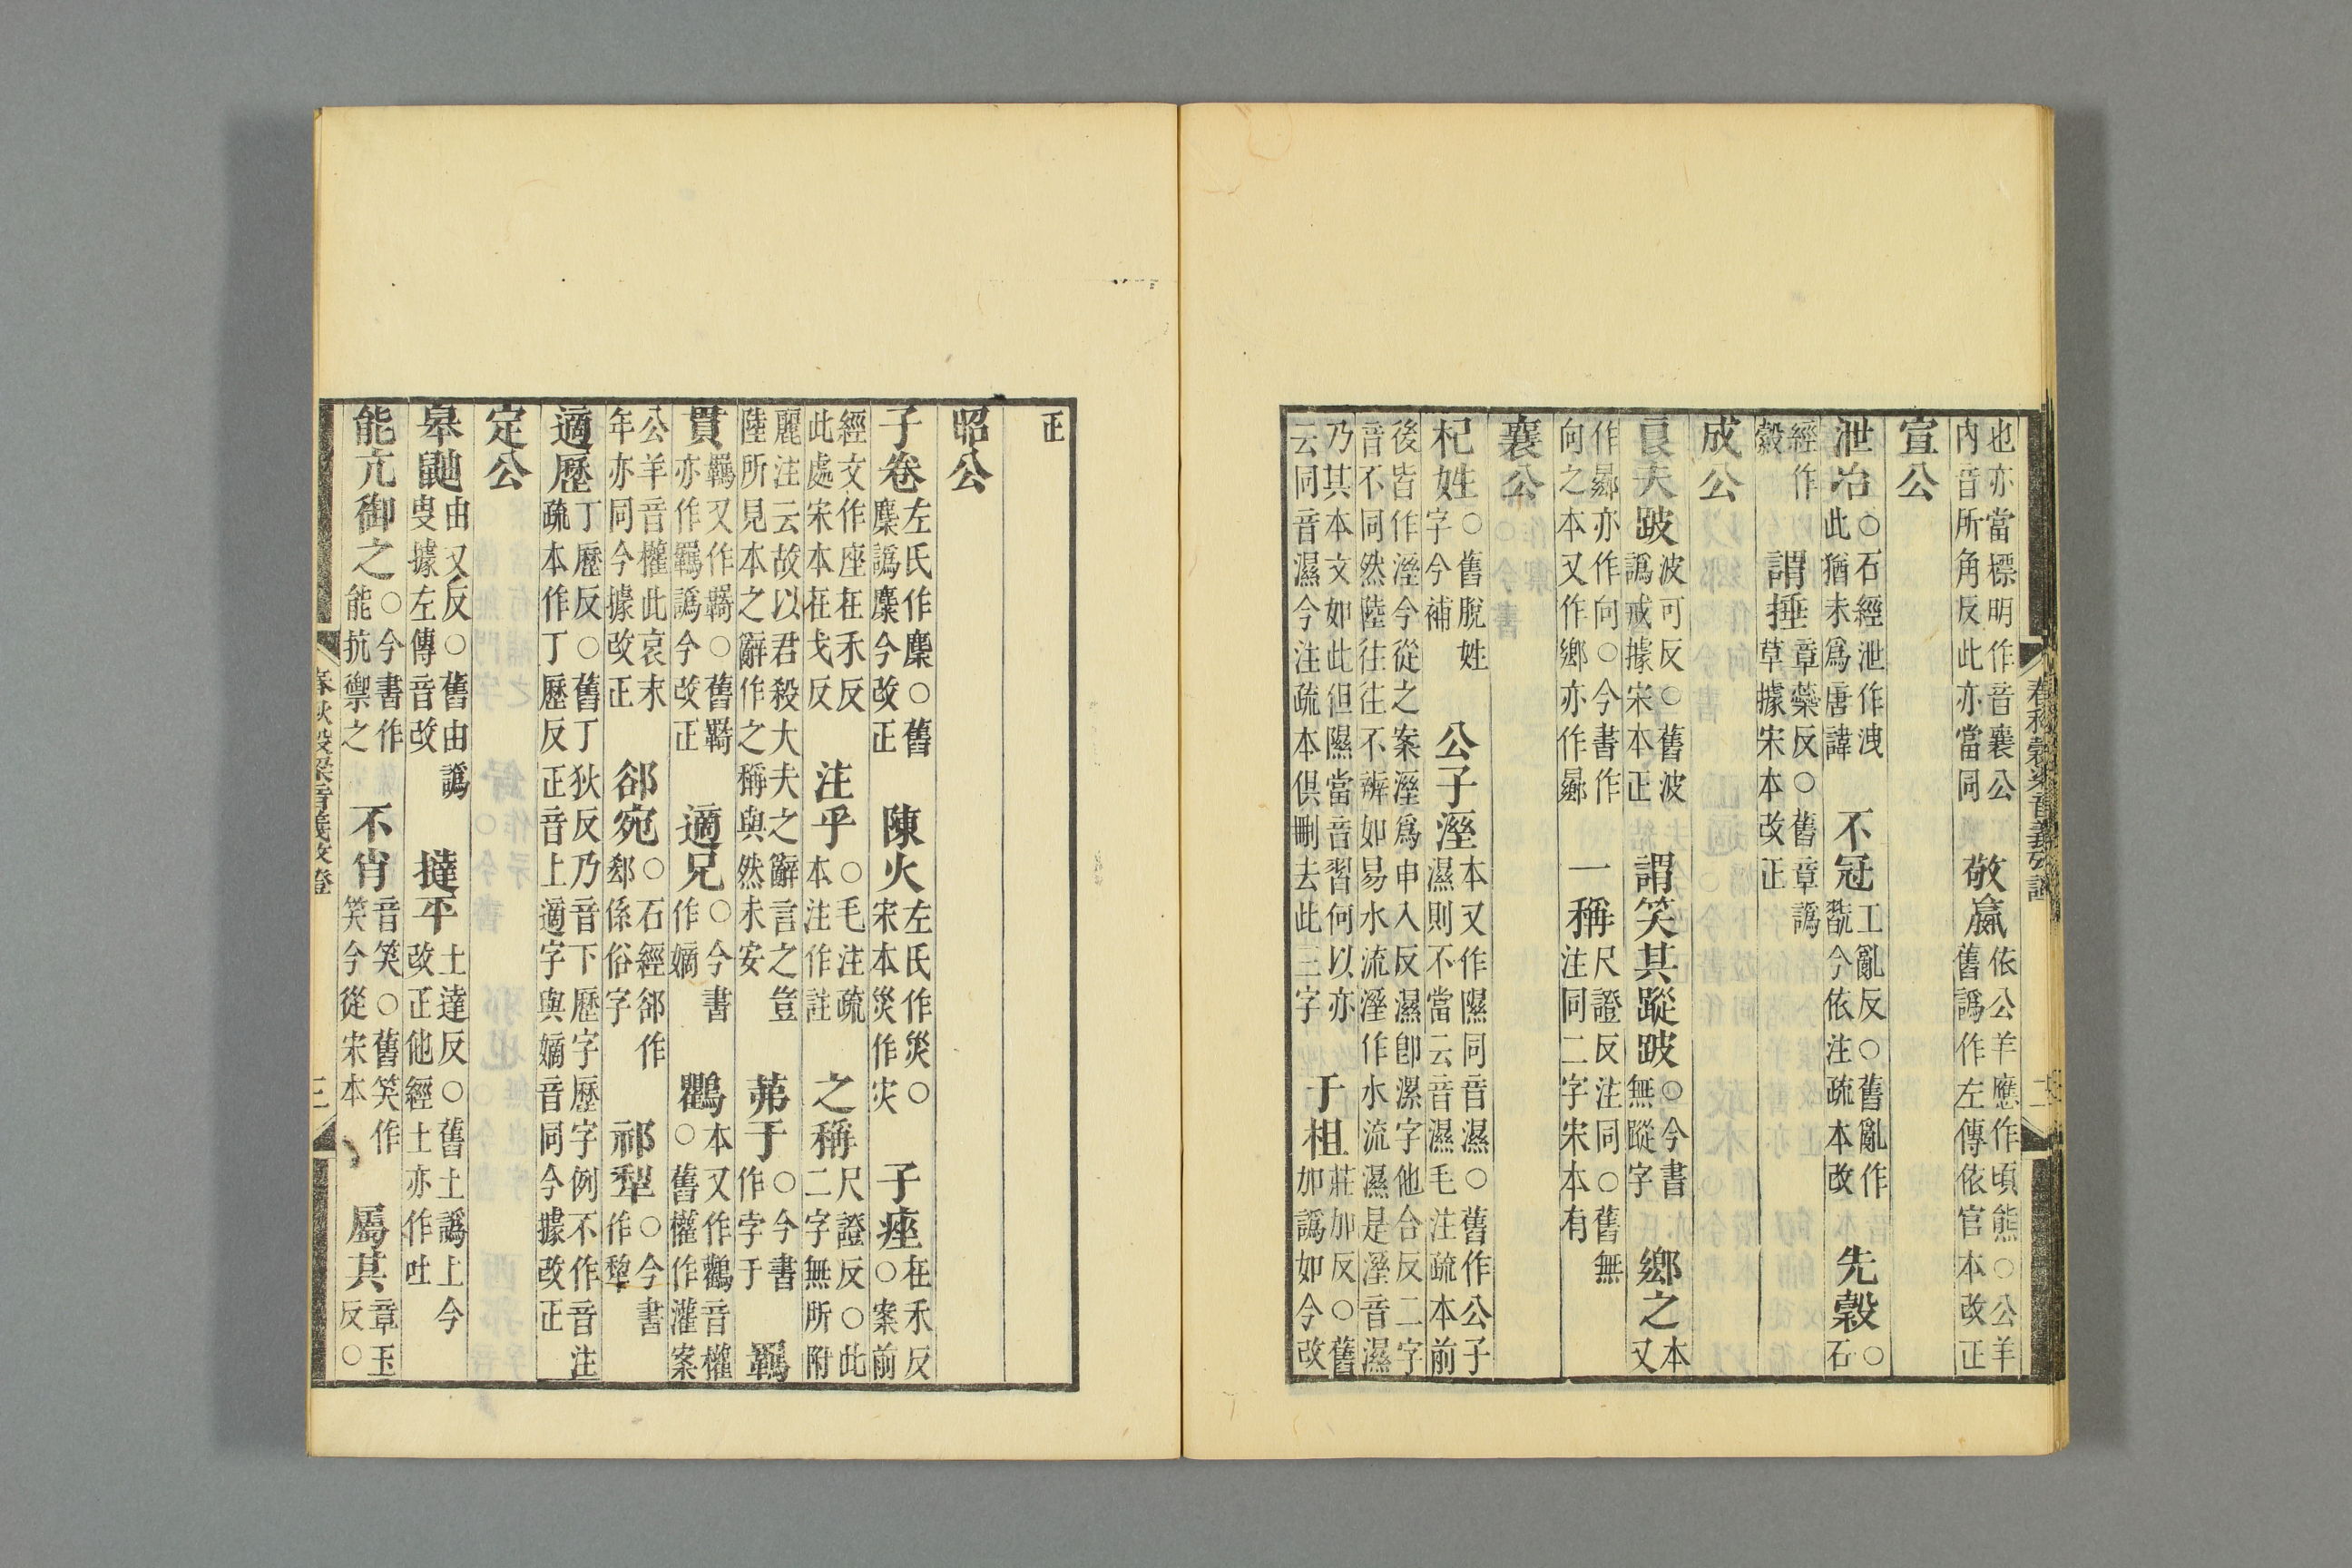 也亦當標明作音襄公
內音所角反此亦當同
敬嬴
依公羊應作頃熊○公羊
舊譌作左傳依官本改正
宣公
泄冶
○石經泄作洩
此猶未爲唐諱
不冠
工亂反○舊亂作
翫今依注疏本改
先縠
○石
經作
縠
謂捶
章藥反○舊章譌
草據宋本改正
成公
良夫跛
波可反○舊波
譌戒據宋本正
謂笑其蹤跛
○今書
無蹤字
鄉之
本又
作曏亦作向○今書作
向之本又作鄉亦作曏
一稱
尺證反注同○舊無
注同二字宋本有
襄公
杞姓
○舊脫姓
字今補
公子溼
本又作隰同音濕○舊作公子
濕則不當云音濕毛注疏本前
後皆作溼今從之案溼爲申入反濕卽漯字他合反二字
音不同然陸往往不辨如易水流溼作水流濕是溼音濕
乃其本文如此但隰當音習何以亦
云同音濕今注疏本俱刪去此三字
于柤
莊加反○舊
加譌如今改
正
昭公
子卷
左氏作麇○舊
麇譌麋今改正
陳火
左氏作災○
宋本災作灾
子痤
在禾反
○案前
經文作座在禾反
此處宋本在戈反
注乎
○毛注疏
本注作註
之稱
尺證反○此
二字無所附
麗注云故以君殺大夫之辭言之豈
陸所見本之辭作之稱與然未安
茀于
○今書
作孛于
羈
貫
羈又作羇○舊羇
亦作羈譌今改正
適兄
○今書
作嫡
鸛
本又作鸛音權
○舊權作灌案
公羊音權此哀末
年亦同今據改正
郤宛
○石經郤作
郄係俗字
祁犁
○今書
作犂
適歷
丁歷反○舊丁狄反乃音下歷字歷字例不作音注
疏本作丁歷反正音上適字與嫡音同今據改正
定公
皋鼬
由又反○舊由譌
叟據左傳音改
撻平
土達反○舊土譌上今
改正他經土亦作吐
能亢御之
○今書作
能抗禦之
不肖
音笑○舊笑作
笑今從宋本
屬其
章玉
反○